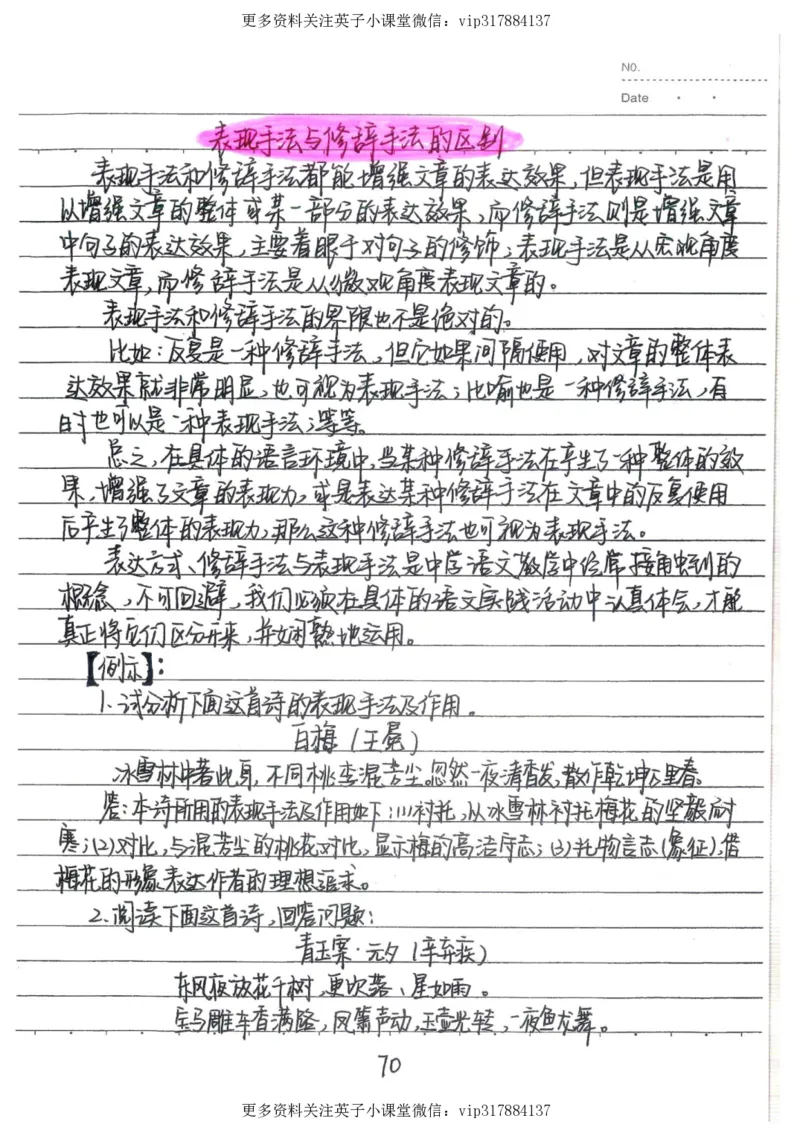 更多资料关注英子小课堂微信：vip317884137
NO.
Date
表现手法与修辞手法的区别
表现手法和修辞手法都能增强文章的表达效果，但表现手法是用
以增强文章的整体或某一部分的表达效果，而修辞手法则是增强文章
中句子的表达效果，主要着眼于对句子的修饰；表现手法是从宏观角度
表现文章，而修辞手法是从微观角度表现文章的。
表现手法和修辞手法的界限也不是绝对的。
比如：反复是一种修辞手法，但它如果间隔使用，对文章的整体表
达效果就非常明显，也可视为表现手法；比喻也是一种修辞手法，有
时也可以是一种表现手法；等等。
总之，在具体的语言环境中，当某种修辞手法在产生了一种整体的效
果，增强了文章的表现力，或是表达某种修辞手法在文章中的反复使用
后产生了整体的表现力，那么这种修辞手法也可视为表现手法。
表达方式、修辞手法与表现手法是中学语文教学中经常接触到的
概念，不可回避，我们必须在具体的语文实践活动中认真体会，才能
真正将它们区分开来，并娴熟地运用。
【例示】：
1、试分析下面这首诗的表现手法及作用。
白梅（王冕）
冰雪林中著此身，不同桃李混芳尘。忽然一夜清香发，散作乾坤万里春。
答：本诗所用的表现手法及作用如下：(1)衬托，从冰雪林衬托梅花的坚毅耐
寒；(2)对比，与混芳尘的桃花对比，显示梅的高洁守志；(3)托物言志(象征)，借
梅花的形象表达作者的理想追求。
2、阅读下面这首诗，回答问题：
青玉案·元夕（辛弃疾）
东风夜放花千树，更吹落、星如雨。
宝马雕车香满路，凤箫声动，玉壶光转，一夜鱼龙舞。
70
更多资料关注英子小课堂微信：vip317884137